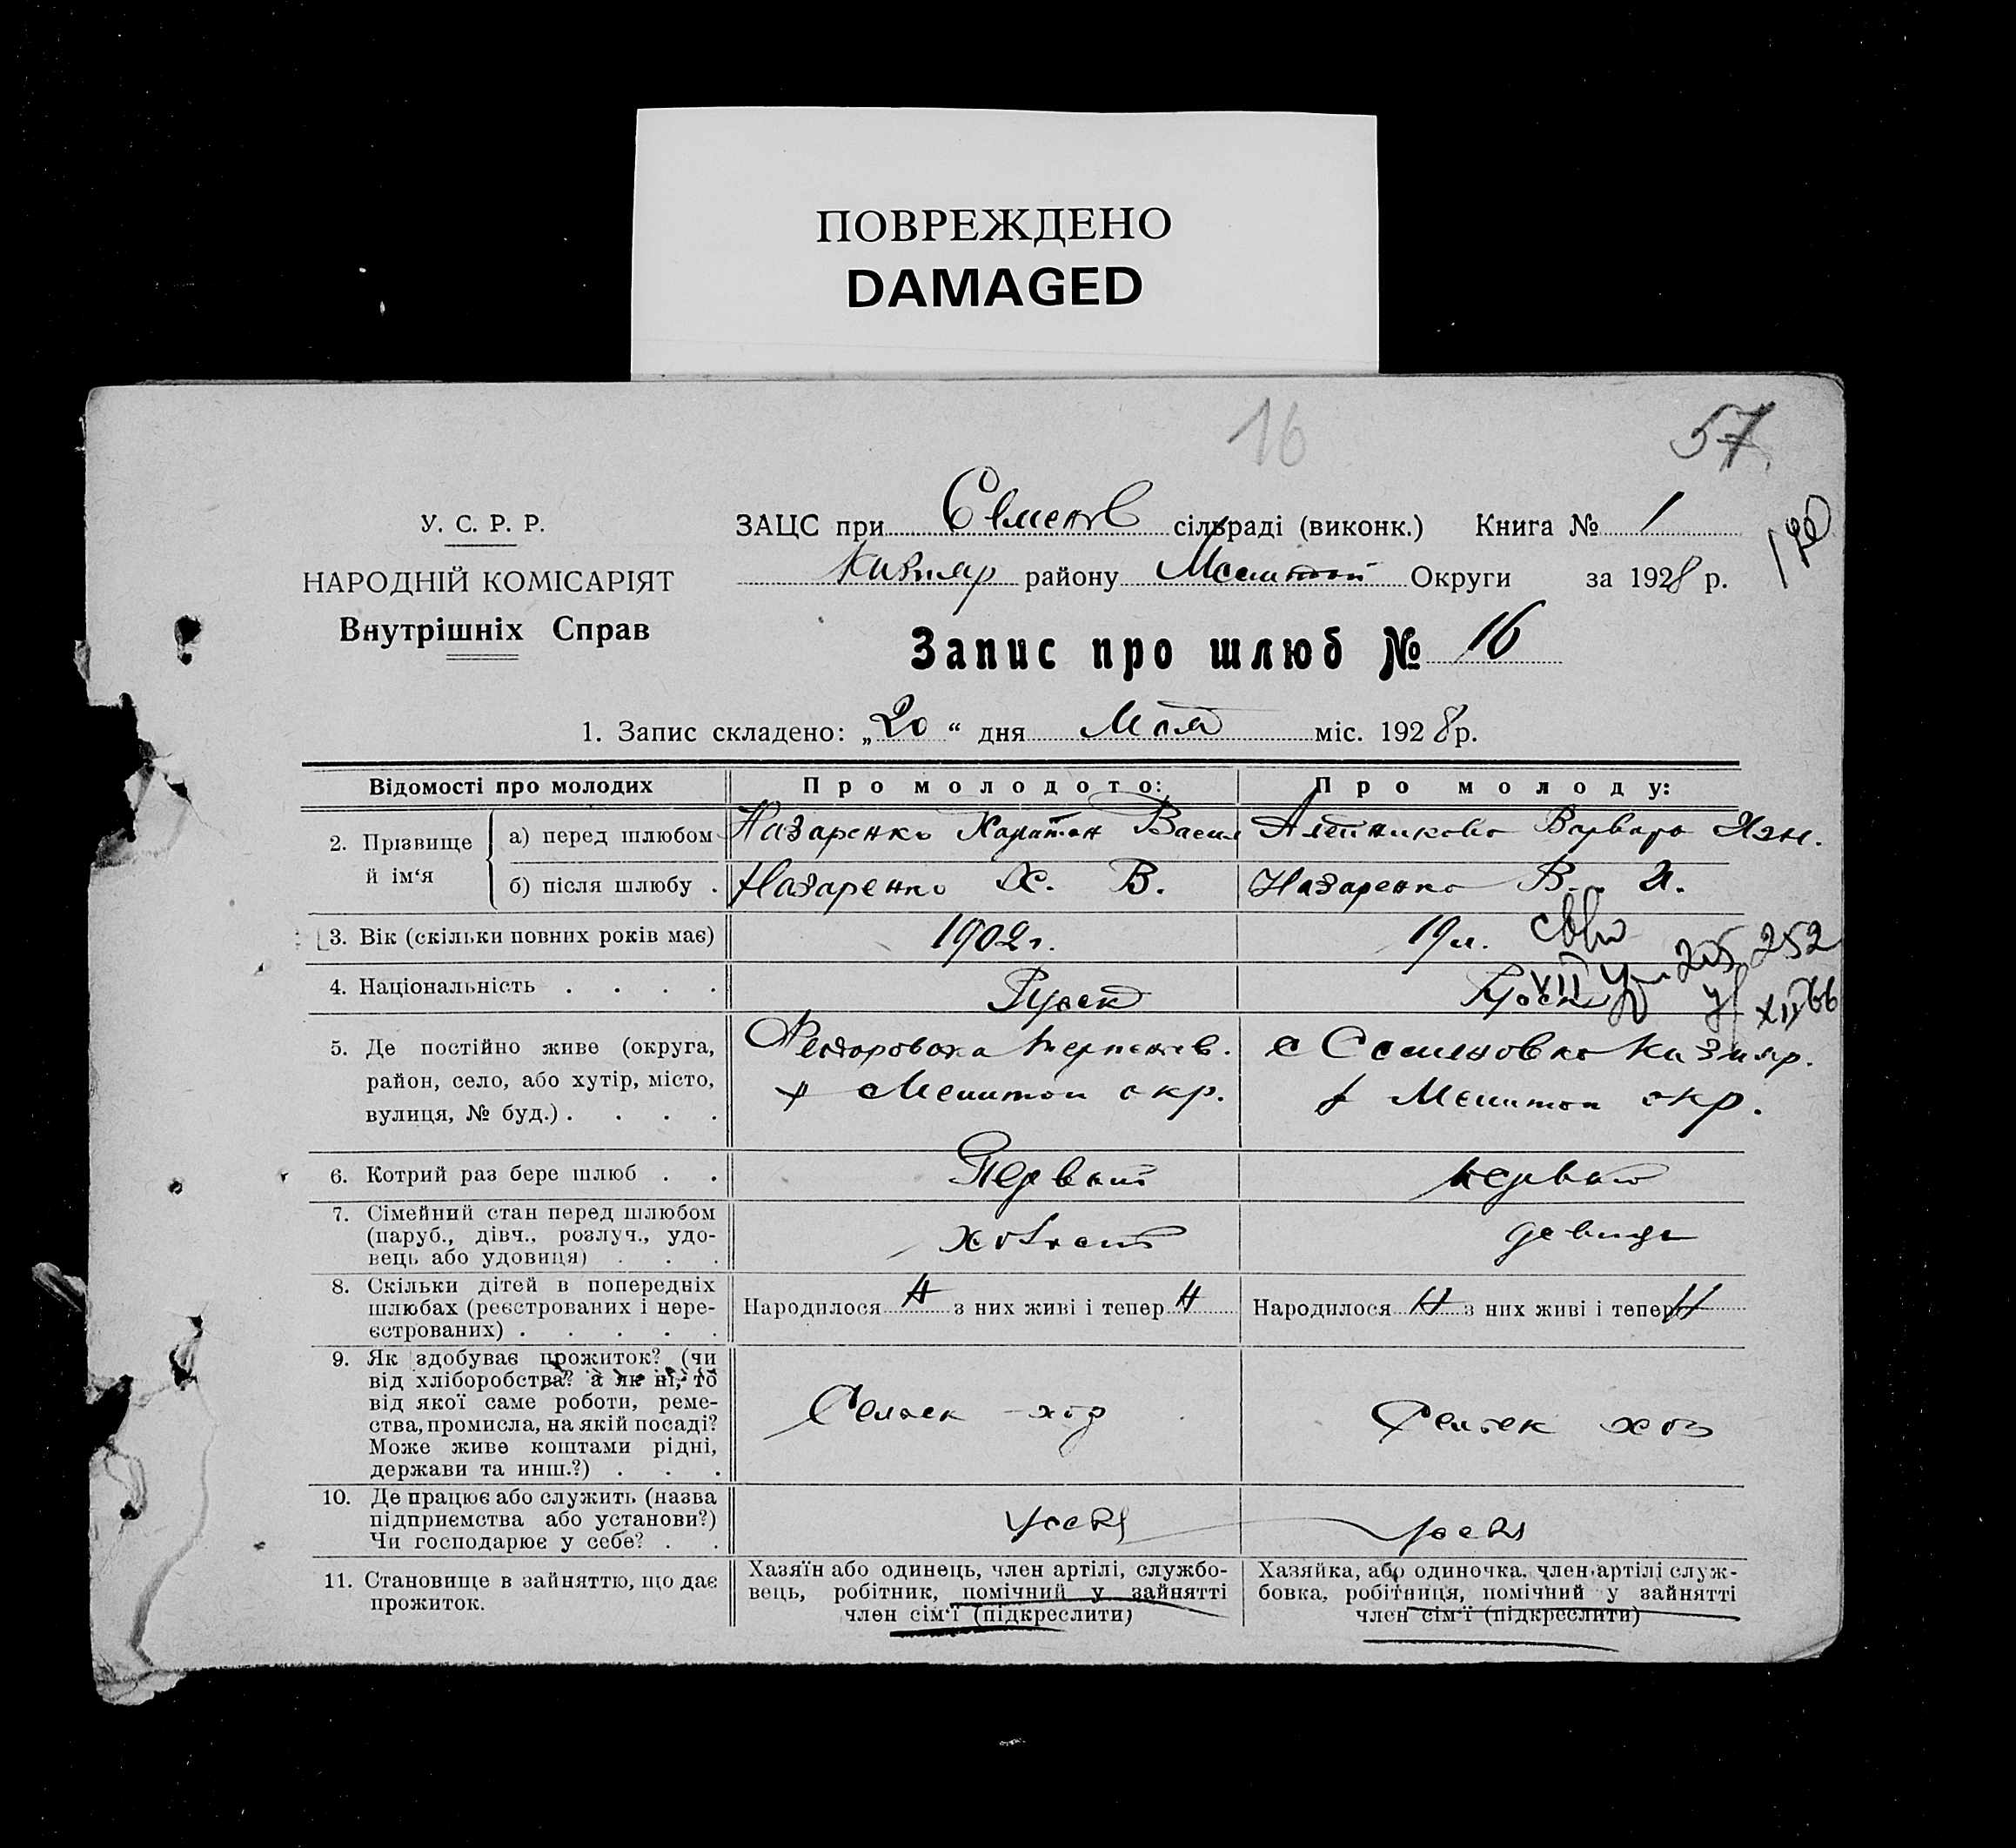 ПОВРЕЖДЕНО
DAMAGED
16
57
У. С. Р. Р.
НАРОДНІЙ КОМІСАРІЯТ
Внутрішніх Справ
ЗАЦС при Семенов сільраді (виконк.) Книга № 1
району Округи за 1928 р.
Запис про шлюб № 16
1. Запис складено: „20“ дня Мая міс. 1928 р.
Відомості про молодих
Про молодого:
Про молоду:
2. Прізвище й ім‘я
а) перед шлюбом
Назаренко Харитон Васил
Варвара
б) після шлюбу .
Назаренко Х. В.
Назаренко В. И.
3. Вік (скільки повних років має)
1902 г.
19 л.
252
4. Національність . . . .
Руск
Руск
XII 66
5. Де постійно живе (округа,
район, село, або хутір, місто,
вулиця, № буд.) . . . .
Федоровка
Мелитоп окр.
с Семеновка
Мелитоп окр.
6. Котрий раз бере шлюб . .
Первый
первый
7. Сімейний стан перед шлюбом
(паруб., дівч., розлуч., удо-
вець або удовиця) . . .
холост
девица
8. Скільки дітей в попередніх
шлюбах (реєстрованих і нере-
єстрованих) . . . . .
Народилося Н з них живі і тепер Н
Народилося Н з них живі і тепер Н
9. Як здобуває прожиток? (чи
від хліборобства? а як ні, то
від якої саме роботи, реме-
ства, промисла, на якій посаді?
Може живе коштами рідні,
держави та инш.?) . . .
Сельск хоз
Сельск хоз
10. Де працює або служить (назва
підприємства або установи?)
Чи господарює у себе? . .
у себя
у себя
11. Становище в зайняттю, що дає
прожиток.
Хазяїн або одинець, член артілі, службо-
вець, робітник, помічний у зайнятті
член сім‘ї (підкреслити)
Хазяйка, або одиночка. член артілі служ-
бовка, робітниця, помічний у зайнятті
член сім‘ї (підкреслити)